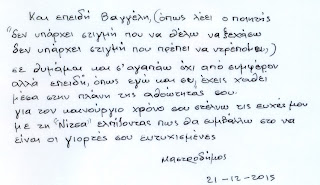 Και επειδή Βαγγέλη, (όπως λέει ο ποιητής
"δεν υπάρχει στιγμή που να θέλω να ξεχάσω
δεν υπάρχει στιγμή που πρέπει να ντρέπομαι,)
σε θυμάμαι και σ' αγαπάω όχι από συμφέρον
αλλά επειδή, όπως εγώ και συ, έχεις χαθεί
μέσα στην πλάνη της αθωότητάς σου.
για τον καινούργιο χρόνο σου στέλνω τις ευχές μου
με τη "Νίτσα" ελπίζοντας πως θα συμβάλω στο να
είναι οι γιορτές σου ευτυχισμένες
Μαστροδήμος
21-12-2015